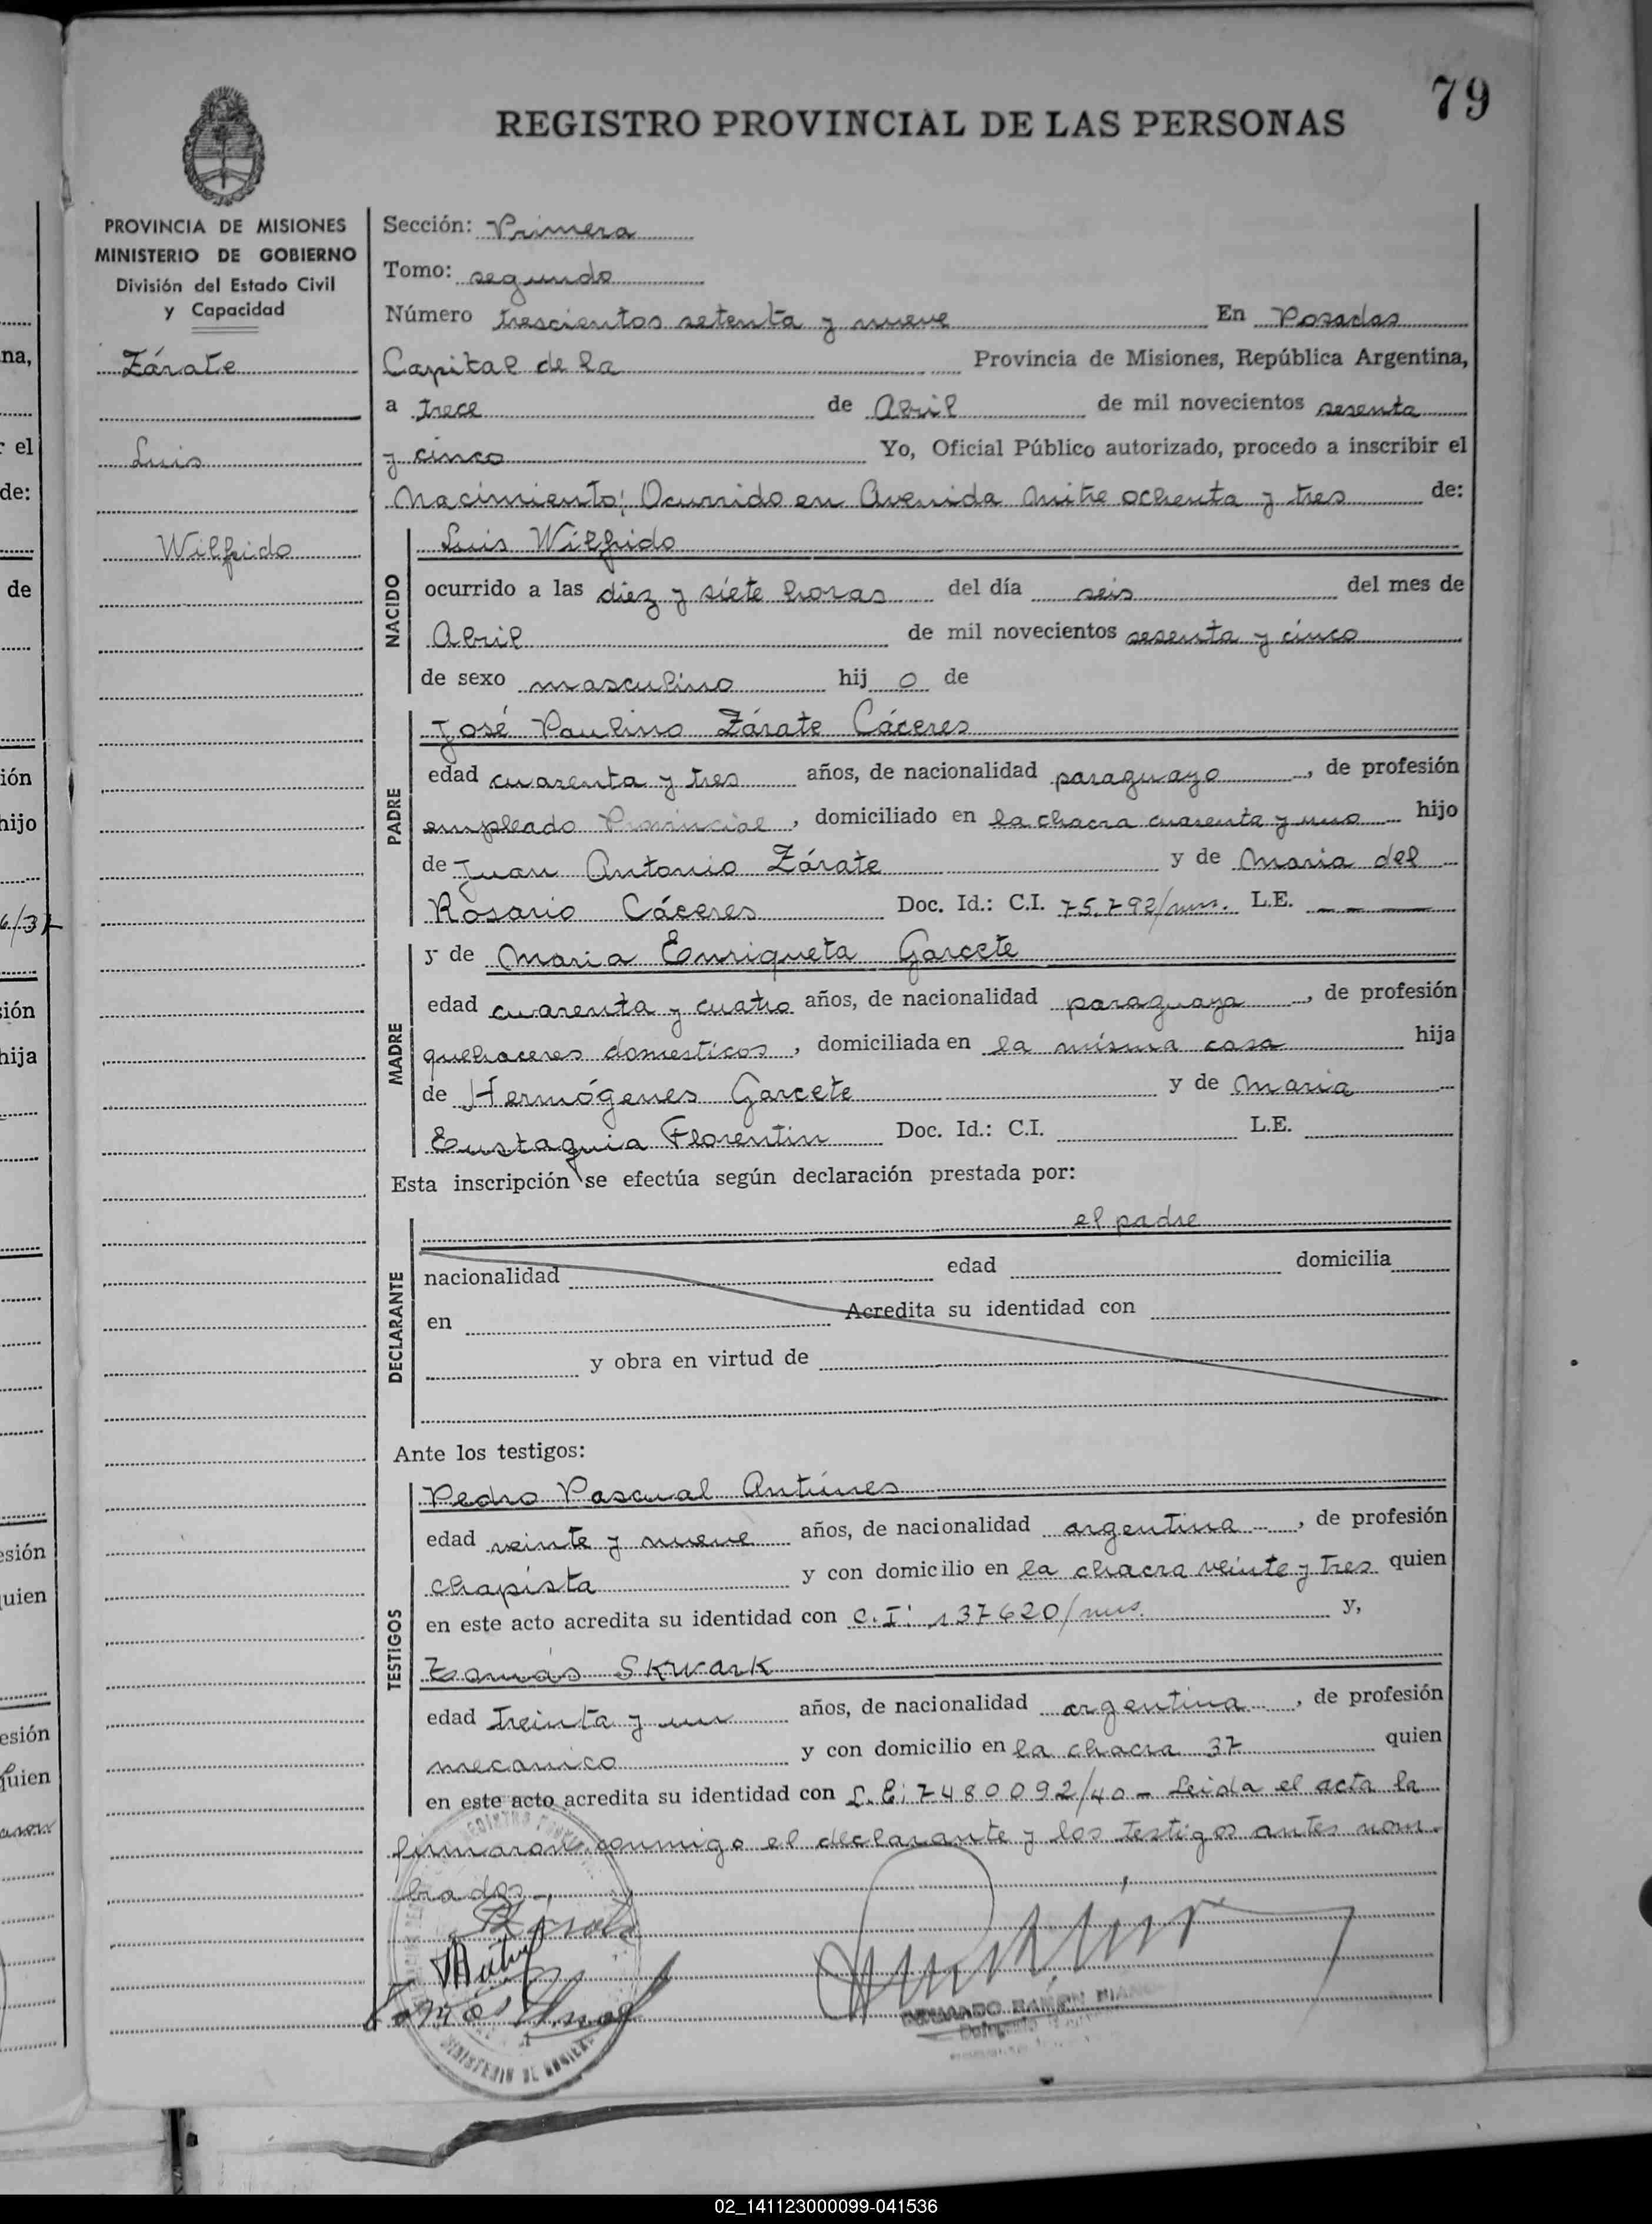 79
REGISTRO PROVINCIAL DE LAS PERSONAS
PROVINCIA DE MISIONES
MINISTERIO DE GOBIERNO
División del Estado Civil
y Capacidad
Zárate
Luis
Wilfrido
Sección: Primera
Tomo: segundo
Número trescientos setenta y nueve En Posadas
Capital de la Provincia de Misiones, República Argentina,
a trece de Abril de mil novecientos sesenta
y cinco Yo, Oficial Público autorizado, procedo a inscribir el
Nacimiento: Ocurrido en Avenida Mitre ochenta y tres de:
NACIDO
Luis Wilfrido
ocurrido a las diez y siete horas del día seis del mes de
Abril de mil novecientos sesenta y cinco
de sexo masculino hij o de
PADRE
José Paulino Zárate Cáceres
edad cuarenta y tres años, de nacionalidad paraguayo, de profesión
empleado Provincial, domiciliado en la chacra cuarenta y uno hijo
de Juan Antonio Zárate y de Maria del
Rosario Cáceres Doc. Id.: C.I. 75.792/mns. L.E. - - -
MADRE
y de Maria Enriqueta Garcete
edad cuarenta y cuatro años, de nacionalidad paraguaya, de profesión
quehaceres domesticos, domiciliada en la misma casa hija
de Hermógenes Garcete y de Maria
Eustaquia Florentin Doc. Id.: C.I. L.E.
Esta inscripción se efectúa según declaración prestada por:
DECLARANTE
el padre
nacionalidad edad domicilia
en Acredita su identidad con
y obra en virtud de
Ante los testigos:
TESTIGOS
Pedro Pascual Antúnes
edad veinte y nueve años, de nacionalidad argentina, de profesión
chapista y con domicilio en la chacra veinte y tres quien
en este acto acredita su identidad con C.I: 137620/mns. y,
Tomás Skwark
edad treinta y un años, de nacionalidad argentina, de profesión
mecanico y con domicilio en la chacra 37 quien
en este acto acredita su identidad con L.E: 7480092/40 - Leida el acta la
firmaron conmigo el declarante y los testigos antes nom-
brados.-
02_141123000099-041536